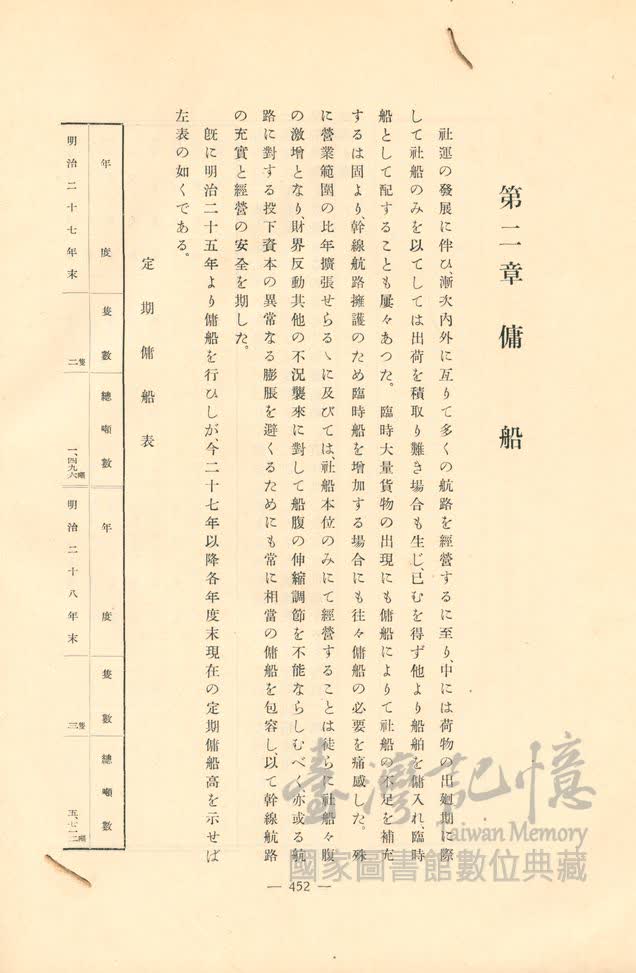 第二章 傭船
社運の發展に伴ひ、漸次内外に亙りて多くの航路を經營するに至り、中には荷物の出廻期に際
して社船のみを以てしては出荷を積取り難き場合も生じ、已むを得ず他より船舶を傭入れ、臨時
船として配することも屢々あつた。臨時大量貨物の出現にも傭船によりて社船の不足を補充
するは固より、幹線航路擁護のため臨時船を增加する場合にも往々傭船の必要を痛感した。殊
に營業範圍の比年擴張せらるゝに及びては、社船本位のみにて經營することは徒らに社船々腹
の激增となり、財界反動其他の不況襲來に對して船腹の伸縮調節を不能ならしむべく、亦或る航
路に對する投下資本の異常なる膨脹を避くるためにも常に相當の傭船を包容し、以て幹線航路
の充實と經營の安全を期した。
旣に明治二十五年より傭船を行ひしが、今二十七年以降各年度末現在の定期傭船高を示せば
左表の如くである。
定期傭船表
年度 隻數 總噸數 年度 隻數 總噸數
明治二十七年末 二隻 一、四九六噸 明治二十八年末 三隻 五、七二二噸
— 452 —
臺灣記憶
Taiwan Memory
國家圖書館數位典藏